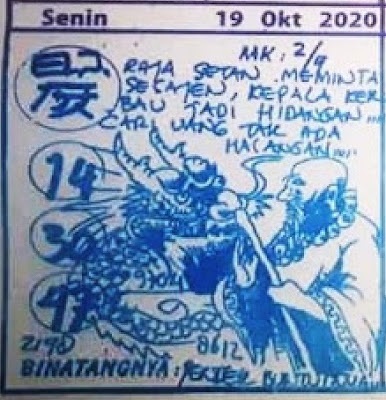 Senin 19 Okt 2020
MK: 2/9
RAJA SETAN MEMINTA
SESAJEN, KEPALA KER
BAU JADI HIDANGAN...
CARI UANG TAK ADA
HALANGAN....
14
30
2190
8612
BINATANGNYA: